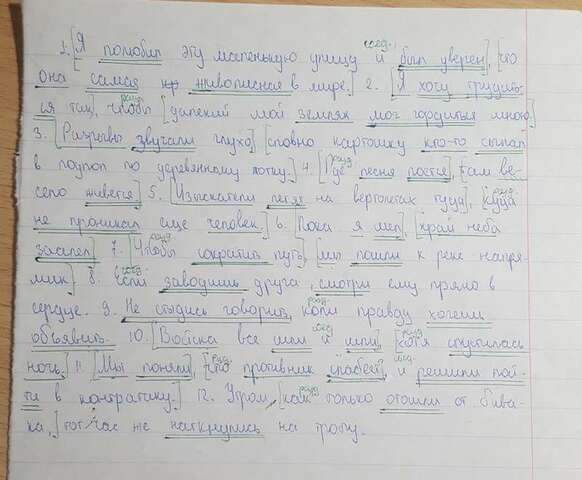 союз.
1. [Я полюбил эту маленькую улицу и был уверен], [что
она самая живописная в мире.] 2. [Я хочу трудить-
ся так], чтобы [далекий мой земляк мог гордиться мною.]
3. [Разрывы звучали глухо], [словно картошку кто-то сыпал
в подпол по деревянному лотку.] 4. [Где песня поётся], [там ве-
село живётся.] 5. [Изыскатели летят на вертолетах туда], [куда
не проникал еще человек.] 6. Пока я шел, [край неба
заспел] 7. [Чтобы сократить путь], [мы пошли к реке напря-
мик.] 8. Если заводишь друга, смотри ему прямо в
сердце. 9. Не стыдись говорить, коли правду хочешь
объявить. 10. [Войска все шли и шли], [хотя спустилась
ночь.] 11. [Мы поняли], [что противник слабеет], и решили пой-
ти в контратаку.] 12. Утром, [как только отошли от бива-
ка,] тот час же наткнулись на тропу.